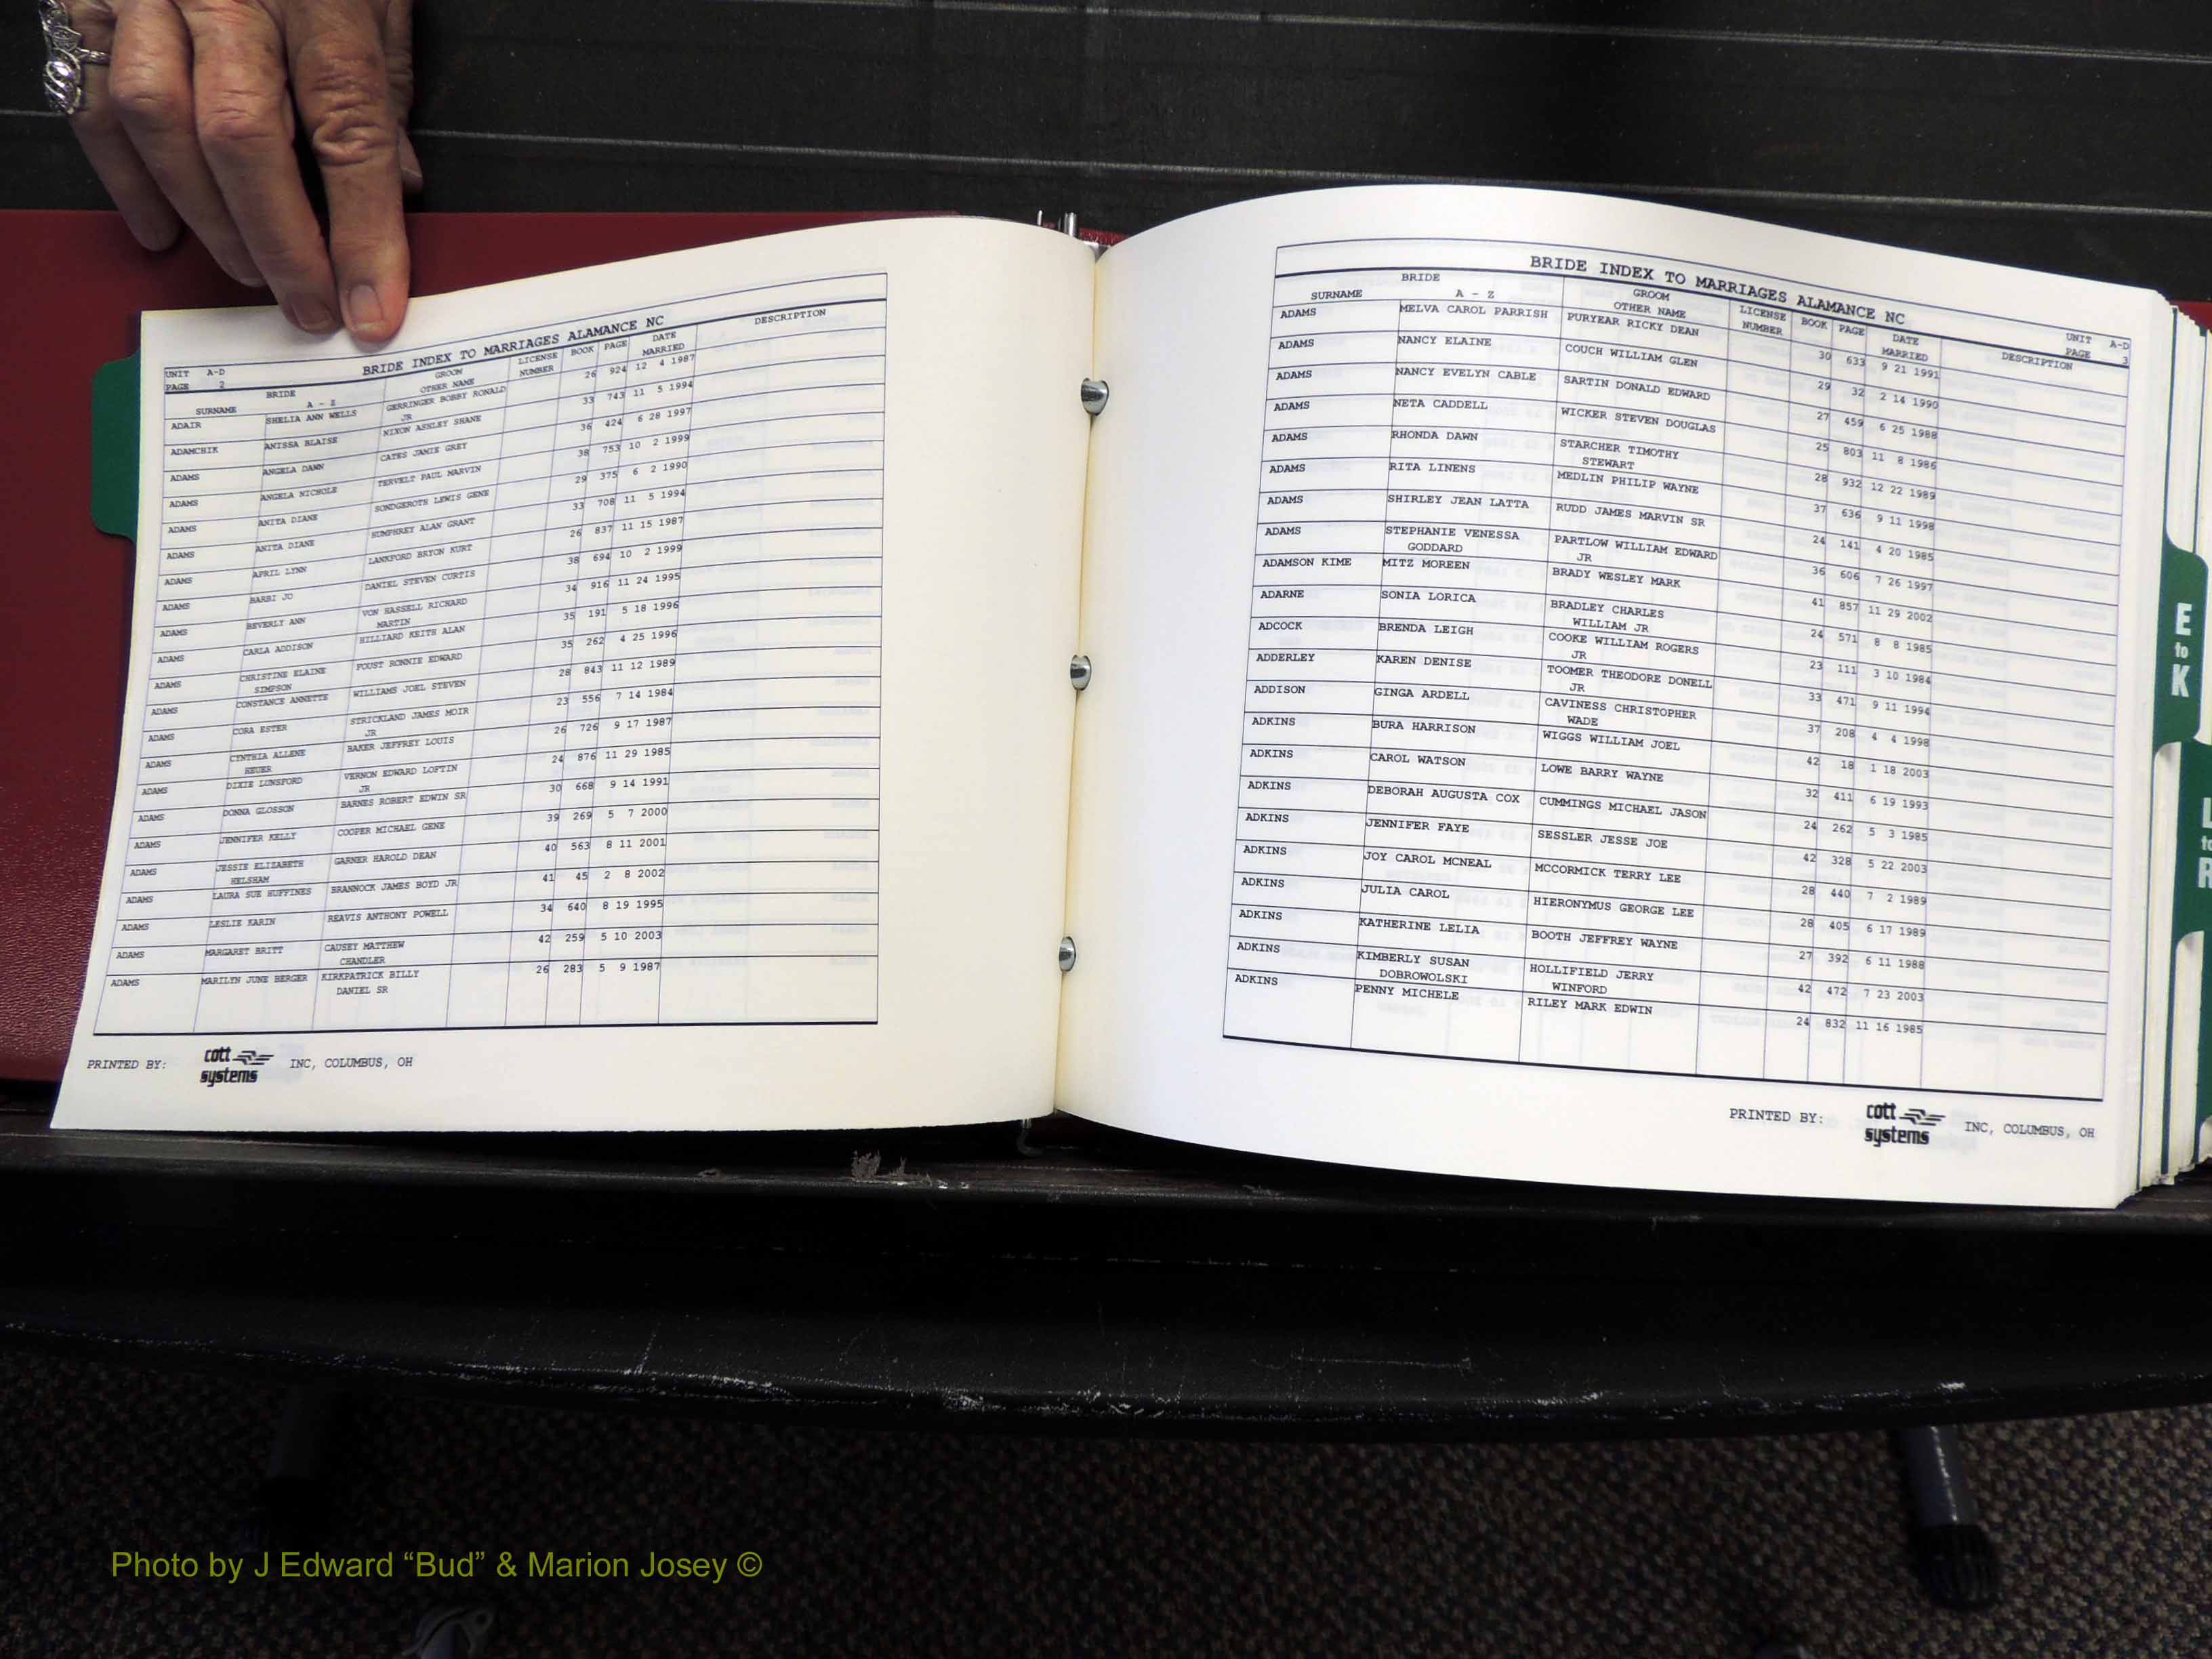 BRIDE INDEX TO MARRIAGES ALAMANCE NC
UNIT A-D
PAGE 2
BRIDE GROOM LICENSE BOOK PAGE DATE DESCRIPTION
SURNAME A - Z OTHER NAME NUMBER MARRIED
ADAIR SHELIA ANN WELLS GERRINGER BOBBY RONALD 26 924 12 4 1987
JR
ADAMCHIK ANISSA BLAISE NIXON ASHLEY SHANE 33 743 11 5 1994
ADAMS ANGELA DAWN CATES JAMIE GREY 36 424 6 28 1997
ADAMS ANGELA NICHOLE TERVELT PAUL MARVIN 38 753 10 2 1999
ADAMS ANITA DIANE SONDGEROTH LEWIS GENE 29 375 6 2 1990
ADAMS ANITA DIANE HUMPHREY ALAN GRANT 33 708 11 5 1994
ADAMS APRIL LYNN LANKFORD BRYON KURT 26 837 11 15 1987
ADAMS BARBI JO DANIEL STEVEN CURTIS 38 694 10 2 1999
ADAMS BEVERLY ANN VON HASSELL RICHARD 34 916 11 24 1995
MARTIN
ADAMS CARLA ADDISON HILLIARD KEITH ALAN 35 191 5 18 1996
ADAMS CHRISTINE ELAINE FOUST RONNIE EDWARD 35 262 4 25 1996
SIMPSON
ADAMS CONSTANCE ANNETTE WILLIAMS JOEL STEVEN 28 843 11 12 1989
ADAMS CORA ESTER STRICKLAND JAMES MOIR 23 556 7 14 1984
JR
ADAMS CYNTHIA ALLENE BAKER JEFFREY LOUIS 26 726 9 17 1987
HEUER
ADAMS DIXIE LUNSFORD VERNON EDWARD LOFTIN 24 876 11 29 1985
JR
ADAMS DONNA GLOSSON BARNES ROBERT EDWIN SR 30 668 9 14 1991
ADAMS JENNIFER KELLY COOPER MICHAEL GENE 39 269 5 7 2000
ADAMS JESSIE ELIZABETH GARNER HAROLD DEAN 40 563 8 11 2001
HELSHAM
ADAMS LAURA SUE HUFFINES BRANNOCK JAMES BOYD JR 41 45 2 8 2002
ADAMS LESLIE KARIN REAVIS ANTHONY POWELL 34 640 8 19 1995
ADAMS MARGARET BRITT CAUSEY MATTHEW 42 259 5 10 2003
CHANDLER
ADAMS MARILYN JUNE BERGER KIRKPATRICK BILLY 26 283 5 9 1987
DANIEL SR
PRINTED BY: cott systems INC, COLUMBUS, OH
BRIDE INDEX TO MARRIAGES ALAMANCE NC
UNIT A-D
PAGE 3
BRIDE GROOM LICENSE BOOK PAGE DATE DESCRIPTION
SURNAME A - Z OTHER NAME NUMBER MARRIED
ADAMS MELVA CAROL PARRISH PURYEAR RICKY DEAN 30 633 9 21 1991
ADAMS NANCY ELAINE COUCH WILLIAM GLEN 29 32 2 14 1990
ADAMS NANCY EVELYN CABLE SARTIN DONALD EDWARD 27 459 6 25 1988
ADAMS NETA CADDELL WICKER STEVEN DOUGLAS 25 803 11 8 1986
ADAMS RHONDA DAWN STARCHER TIMOTHY 28 932 12 22 1989
STEWART
ADAMS RITA LINENS MEDLIN PHILIP WAYNE 37 636 9 11 1998
ADAMS SHIRLEY JEAN LATTA RUDD JAMES MARVIN SR 24 141 4 20 1985
ADAMS STEPHANIE VENESSA PARTLOW WILLIAM EDWARD 36 606 7 26 1997
GODDARD JR
ADAMSON KIME MITZ MOREEN BRADY WESLEY MARK 41 857 11 29 2002
ADARNE SONIA LORICA BRADLEY CHARLES 24 571 8 8 1985
WILLIAM JR
ADCOCK BRENDA LEIGH COOKE WILLIAM ROGERS 23 111 3 10 1984
JR
ADDERLEY KAREN DENISE TOOMER THEODORE DONELL 33 471 9 11 1994
JR
ADDISON GINGA ARDELL CAVINESS CHRISTOPHER 37 208 4 4 1998
WADE
ADKINS BURA HARRISON WIGGS WILLIAM JOEL 42 18 1 18 2003
ADKINS CAROL WATSON LOWE BARRY WAYNE 32 411 6 19 1993
ADKINS DEBORAH AUGUSTA COX CUMMINGS MICHAEL JASON 24 262 5 3 1985
ADKINS JENNIFER FAYE SESSLER JESSE JOE 42 328 5 22 2003
ADKINS JOY CAROL MCNEAL MCCORMICK TERRY LEE 28 440 7 2 1989
ADKINS JULIA CAROL HIERONYMUS GEORGE LEE 28 405 6 17 1989
ADKINS KATHERINE LELIA BOOTH JEFFREY WAYNE 27 392 6 11 1988
ADKINS KIMBERLY SUSAN HOLLIFIELD JERRY 42 472 7 23 2003
DOBROWOLSKI WINFORD
ADKINS PENNY MICHELE RILEY MARK EDWIN 24 832 11 16 1985
PRINTED BY: cott systems INC, COLUMBUS, OH
E
to
K
L
to
R
Photo by J Edward “Bud” & Marion Josey ©